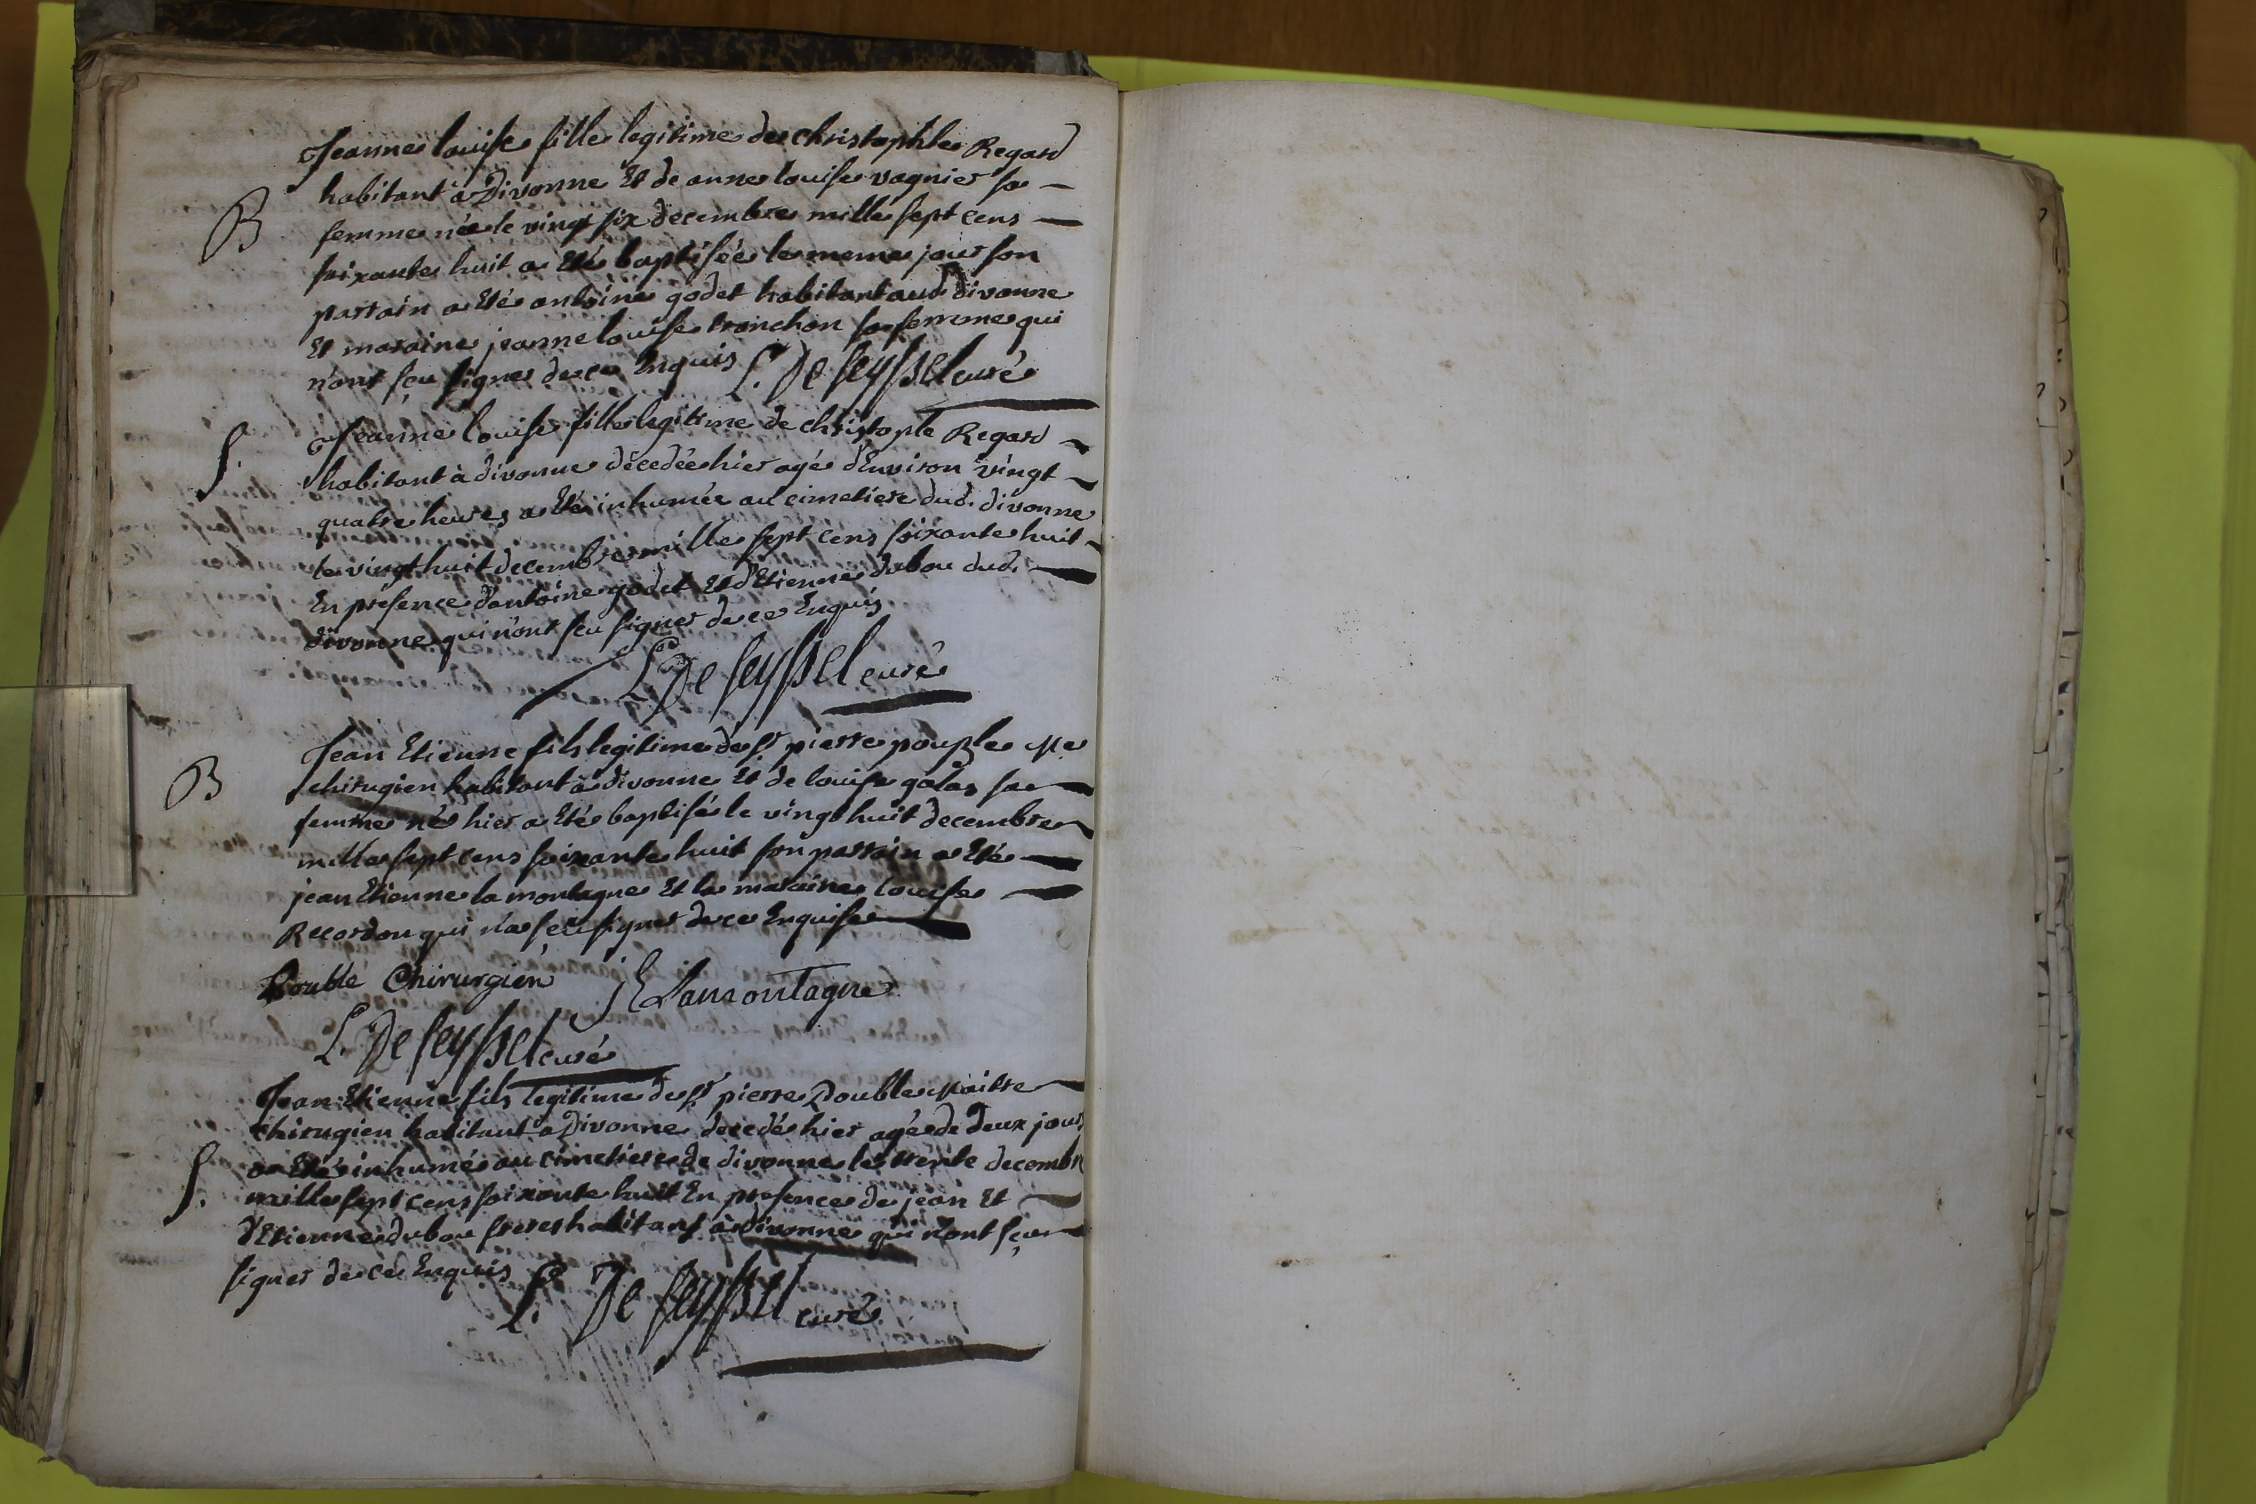 Jeanne louise fille legitime de christophle Regard
habitant à Divonne Et de anne louise vagnier sa
B
femme née le vingt six decembre mille sept cens
soixante huit a Eté baptisée le meme jour son
parrain a Eté antoine godet habitant aud. divonne
Et maraine jeanne louise tronchon sa femme qui
n'ont sçu signer de ce Enquis L. De Seyssel curé
Jeanne louise fille legitime de christople Regard
S.
habitant à divonne décedée hier agé d'Environ vingt
quatre heures a Eté inhumée au cimetiere dud. divonne
le vingt huit decembre mille sept cens soixante huit
En présence d'antoine godet Et d'Etienne dubou dud.
divonne qui n'ont seu signer de ce Enquis
L. De Seyssel curé
Jean Etienne fils legitime de Sr pierre pouble Me
B
chirugien habitant à divonne Et de louise galas sa
femme né hier a Eté baptisé le vingt huit decembre
mille sept cens soixante huit son parrain a Eté
jean Etienne la montagne Et la maraine louise
Recordon qui n'a seu signer de ce Enquise
Double Chirurgien JE Lamontagne
L. De Seyssel curé
Jean Etienne fils legitime de Sr pierre Double Maitre
chirugien habitant a Divonne decedé hier agé de deux jours
S.
a Eté inhumé au cimetiere de divonne le trente decembre
mille sept cens soixante huit En presence de jean Et
d'Etienne dubou freres habitans à divonne qui n'ont sçu
signer de ce Enquis L. De Seyssel curé